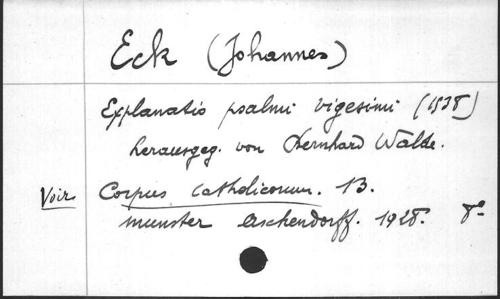 Eck (Johannes)
Explanatio psalmi vigesimi (1538)
herausgeg. von Bernhard Walde.
Voir Corpus catholicorum. 13.
munster Aschendorff. 1928. 8°